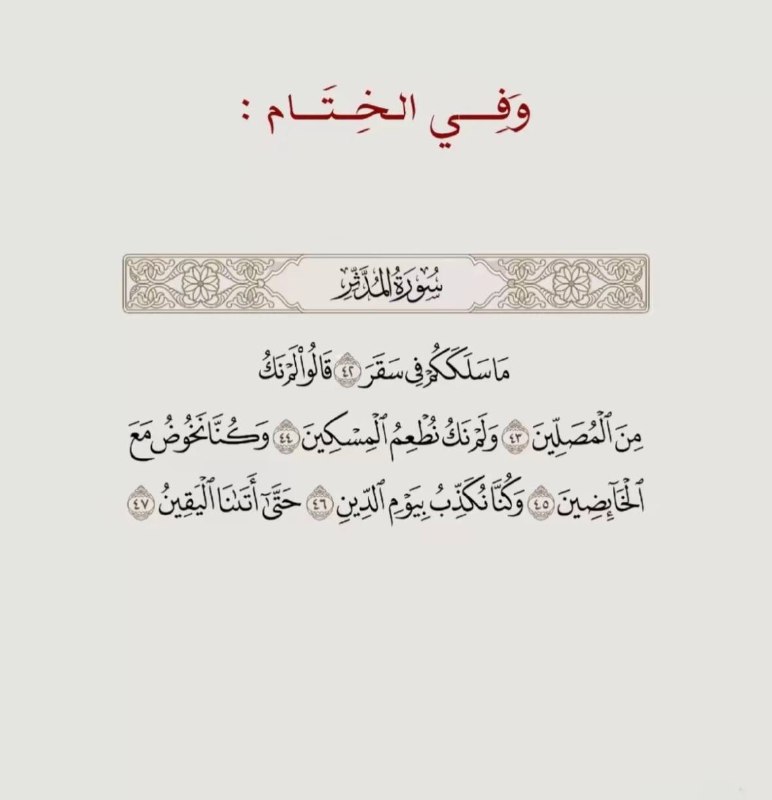 وَفِــي الـخِـتَــام :
سُورَةُ المُدَّثِّرِ
مَا سَلَكَكُمْ فِي سَقَرَ ٤٢ قَالُوا۟ لَمْ نَكُ
مِنَ ٱلْمُصَلِّينَ ٤٣ وَلَمْ نَكُ نُطْعِمُ ٱلْمِسْكِينَ ٤٤ وَكُنَّا نَخُوضُ مَعَ
ٱلْخَآئِضِينَ ٤٥ وَكُنَّا نُكَذِّبُ بِيَوْمِ ٱلدِّينِ ٤٦ حَتَّىٰٓ أَتَىٰنَا ٱلْيَقِينُ ٤٧